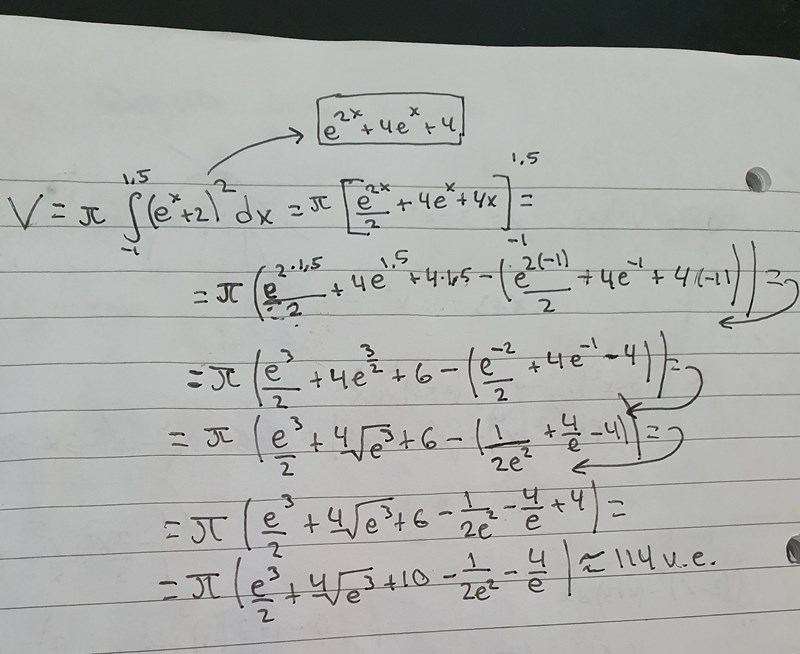 e^{2x} + 4e^x + 4
V = π ∫_{-1}^{1,5} (e^x + 2)^2 dx = π [e^{2x}/2 + 4e^x + 4x]_{-1}^{1,5} =
= π (e^{2·1,5}/2 + 4e^{1,5} + 4·1,5 − (e^{2(-1)}/2 + 4e^{-1} + 4(-1))) =
= π (e^3/2 + 4e^{3/2} + 6 − (e^{-2}/2 + 4e^{-1} − 4)) =
= π (e^3/2 + 4√e^3 + 6 − (1/2e^2 + 4/e − 4)) =
= π (e^3/2 + 4√e^3 + 6 − 1/2e^2 − 4/e + 4) =
= π (e^3/2 + 4√e^3 + 10 − 1/2e^2 − 4/e) ≈ 114 v.e.